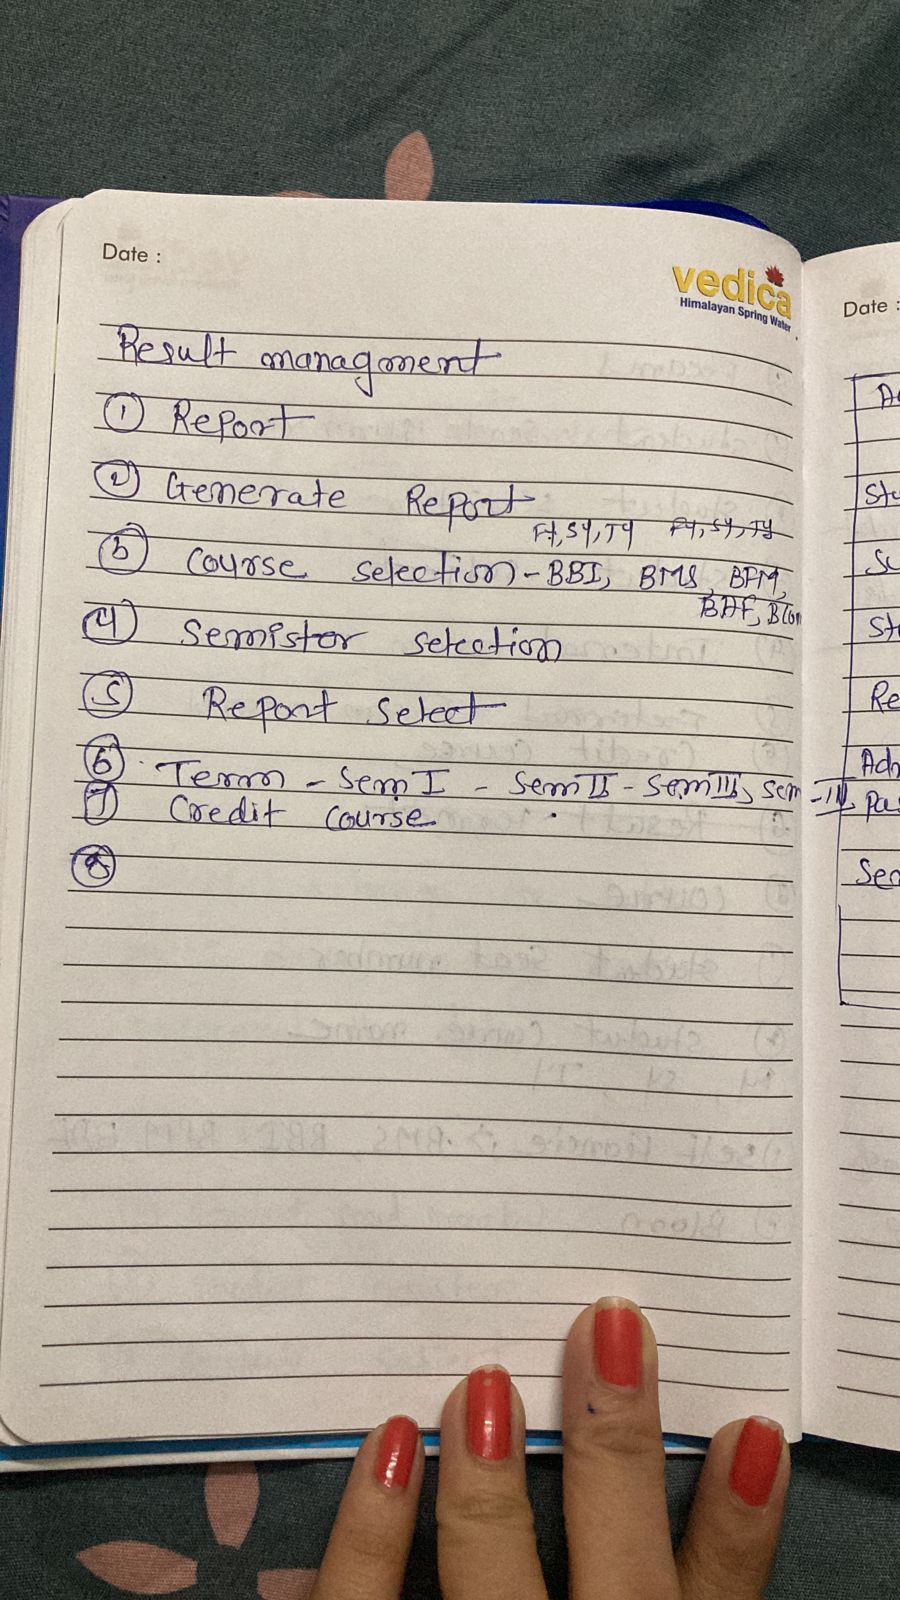 Date :
vedica
Himalayan Spring Water
Date :
Result managment
① Report
② Generate Report
FY, SY, TY FY, SY, TY
③ Course selection - BBI, BMS, BFM,
BAF, BCom
④ Semister selection
⑤ Report select
⑥ Term - Sem I - Sem II - Sem III, Sem - IV
⑦ Credit course
⑧